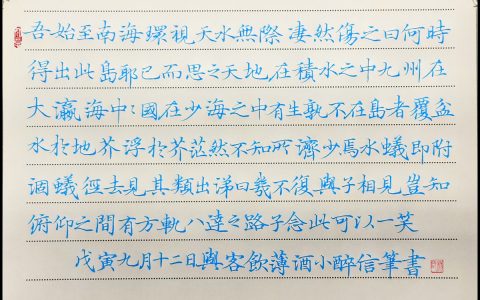 吾始至南海環視天水無際凄然傷之曰何時
得出此島耶已而思之天地在積水之中九州在
大瀛海中〻國在少海之中有生孰不在島者覆盆
水於地芥浮於芥茫然不知所濟少焉水蟻即附
涸蟻徑去見其類出涕曰幾不復與子相見豈知
俯仰之間有方軌八達之路乎念此可以一笑
戊寅九月十二日與客飲薄酒小醉信筆書